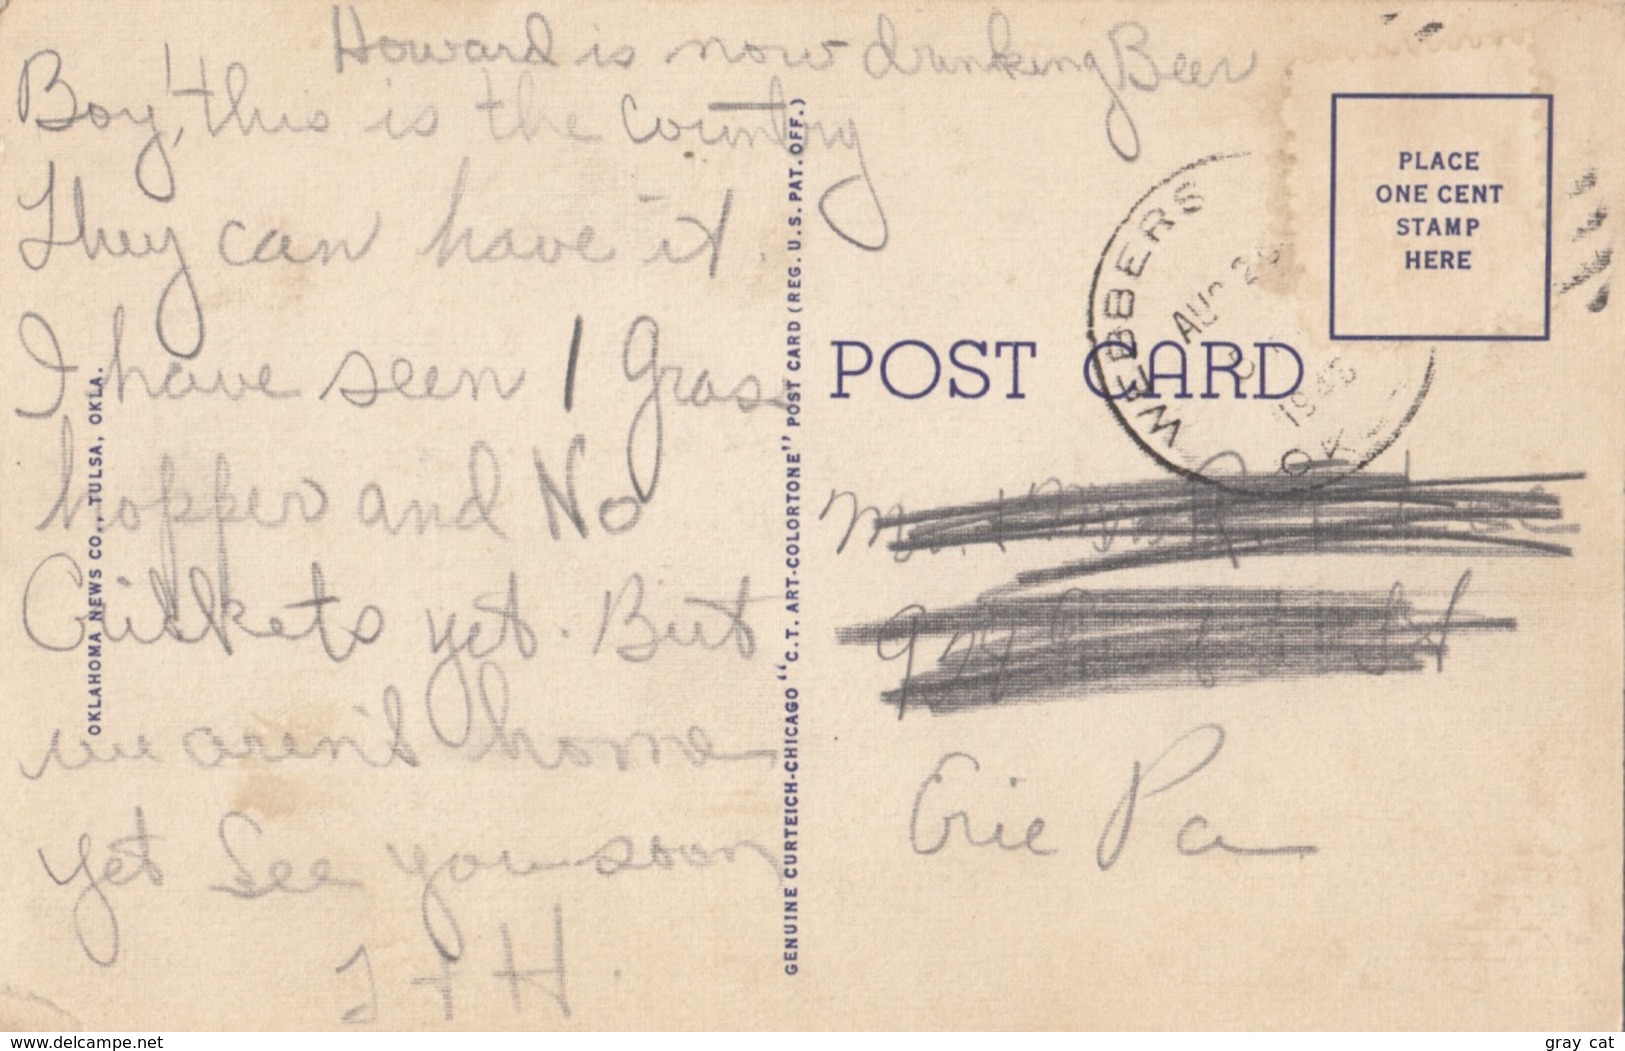 Howard is now drinking Beer
Boy, this is the country
They can have it.
I have seen 1 Grass
hopper and No
Crickets yet. But
we aren't home
yet See you soon
J + H.
OKLAHOMA NEWS CO., TULSA, OKLA.
GENUINE CURTEICH-CHICAGO "C. T. ART-COLORTONE" POST CARD (REG. U. S. PAT. OFF.)
PLACE
ONE CENT
STAMP
HERE
POST CARD
WEBBERS
AUG
OK
Mr. + Mrs
Erie Pa
delcampe.net
gray cat